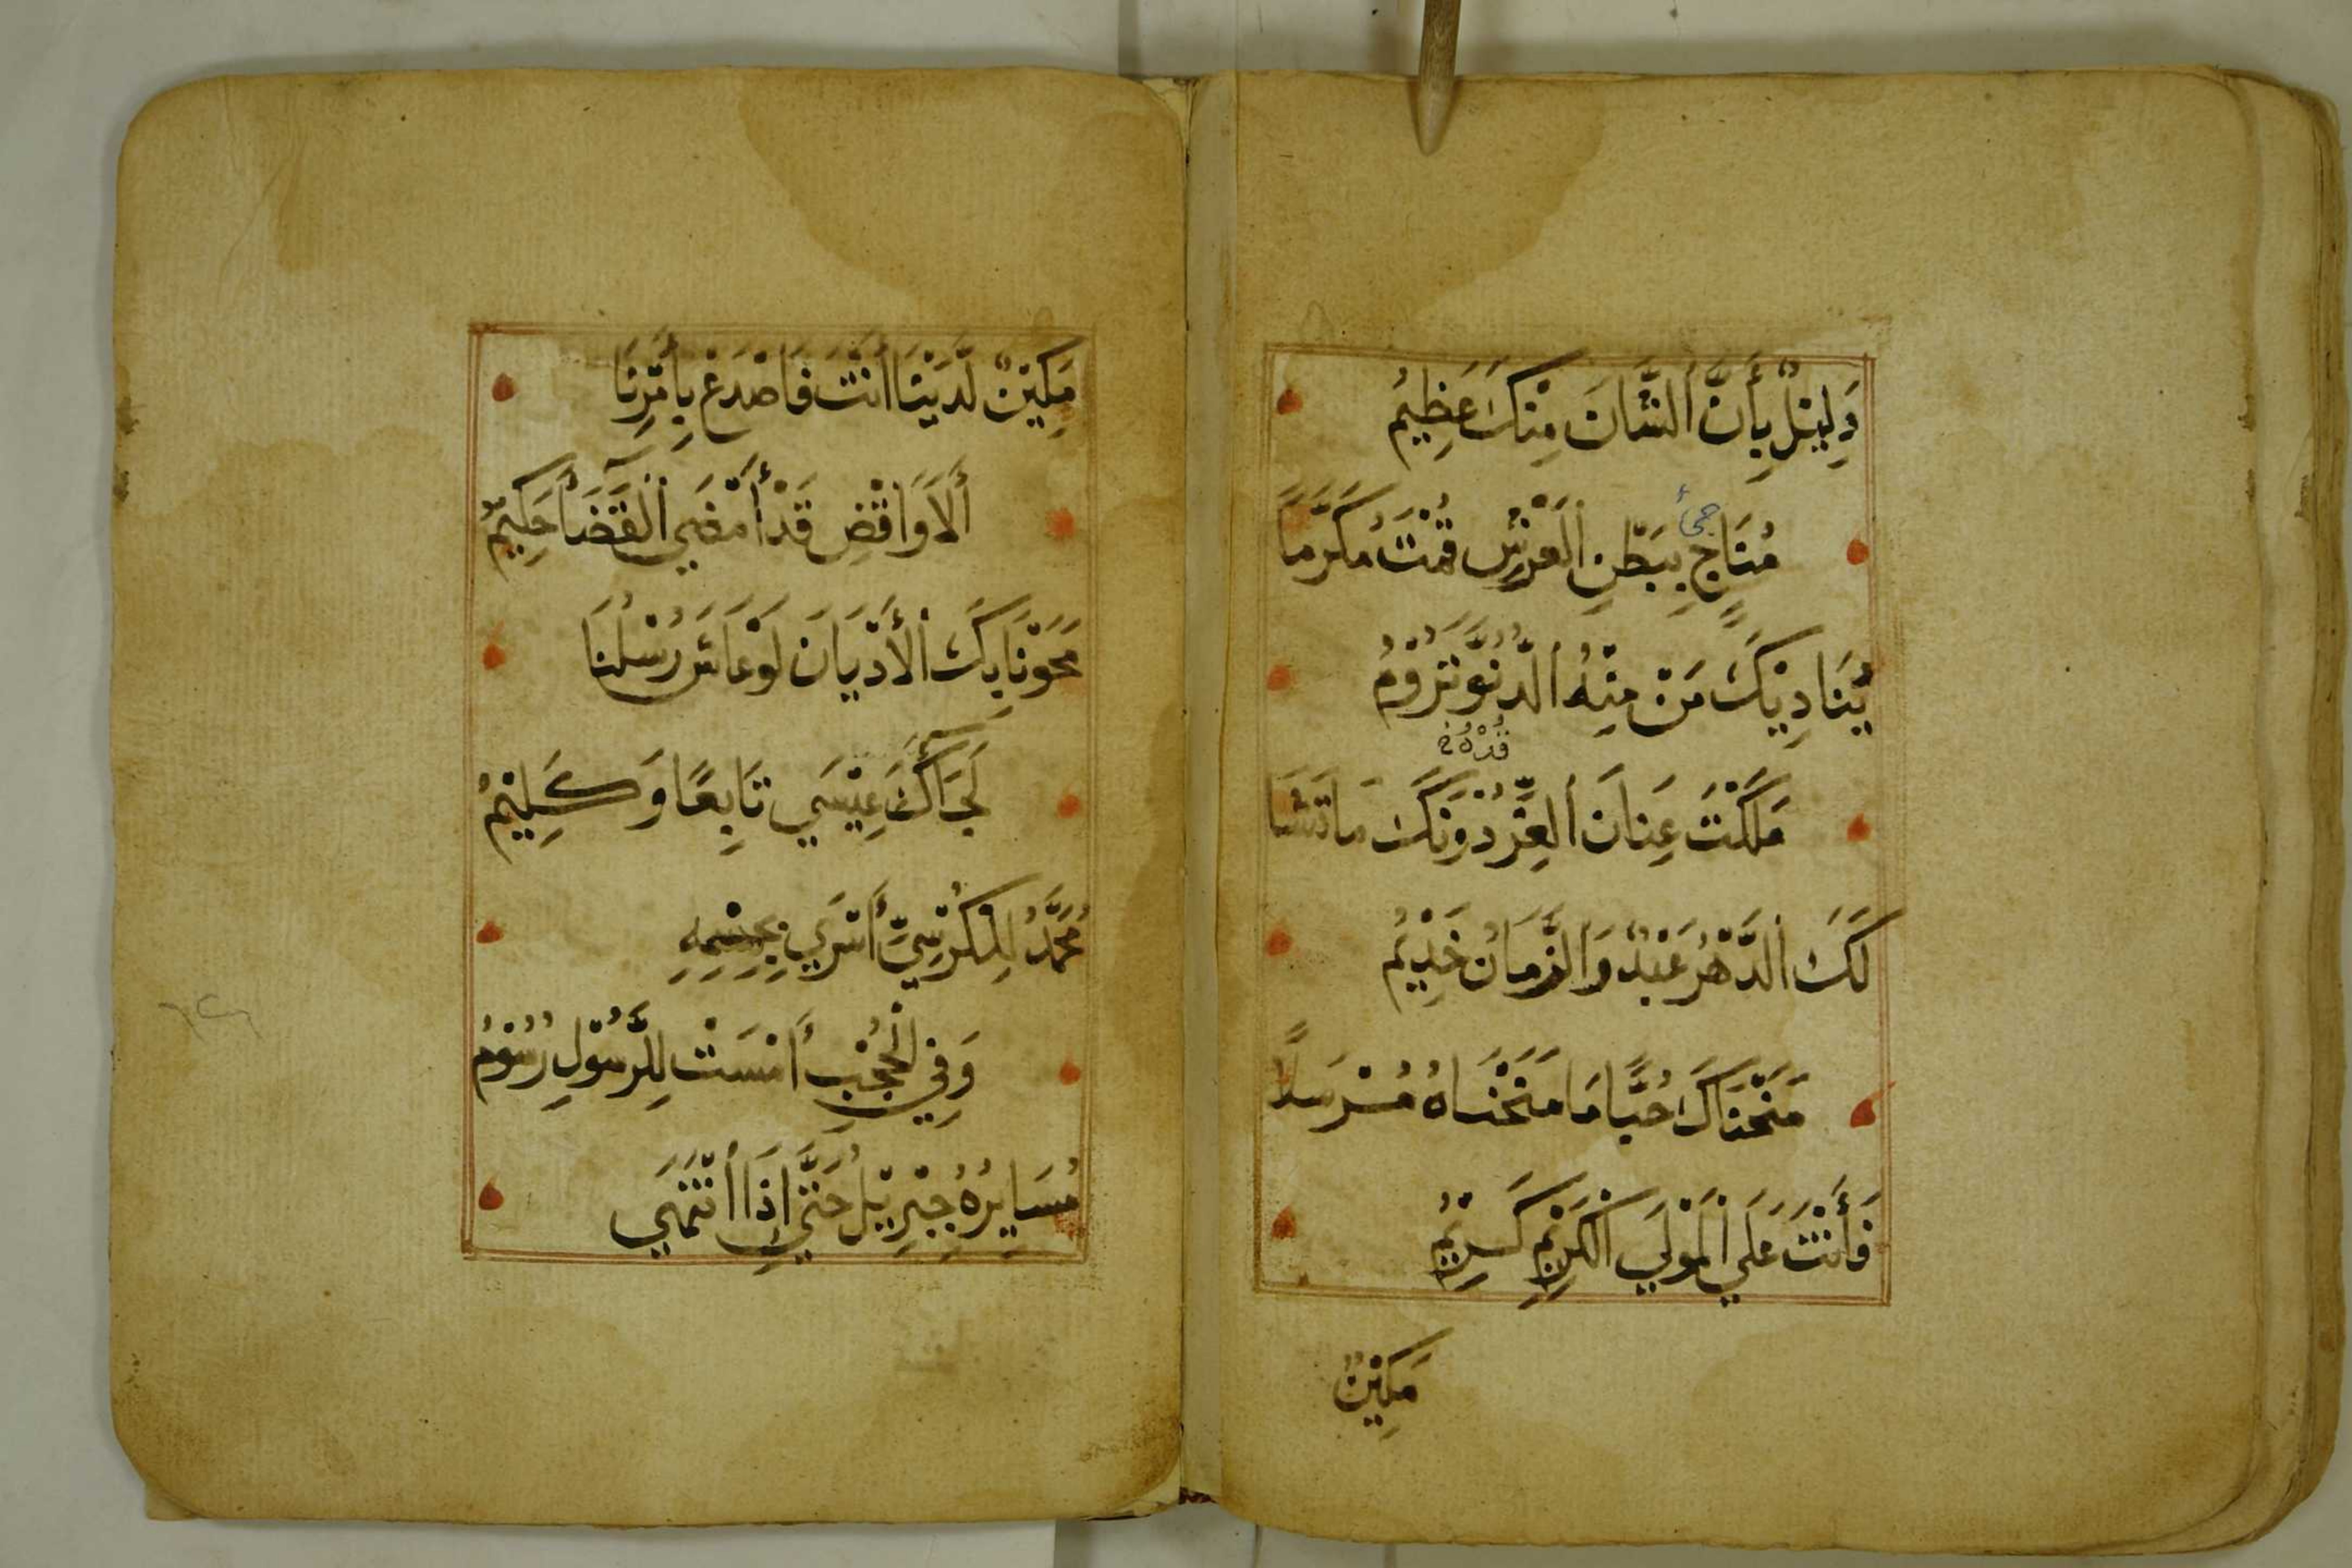 دَلِيْلٌ بِأَنَّ الشَّانَ مِنْكَ عَظِيْمُ
جئ
مُنَاجٍ بِبَطْنِ الْعَرْشِ قُمْتَ مُكَرَّمًا
يُنَادِيْكَ مَنْ مِنْهُ الدُّنُوَّ تَرُوْمُ
مَلَكْتَ عِنَانَ الْعِزِّ دُوْنَكَ مَا تَشَا
لَكَ الدَّهْرُ عَبْدٌ وَالزَّمَانُ خَدِيْمُ
مَنَحْنَاكَ حُبًّا مَا مَنَحْنَاهُ مُرْسَلًا
فَأَنْتَ عَلَي الْمَوْلَي الْكَرِيْمِ كَرِيْمُ
مَكِيْنٌ
مَكِيْنٌ لَدَيْنَا أَنْتَ فَاصْدَعْ بِأَمْرِنَا
أَلَا وَاقْضِ قَدْ أَمْضَي الْقَضَآ حَكِيْمٌ
مَحَوْنَا بِكَ الْأَدْيَانَ لَوْ عَاشَ رُسْلُنَا
لَجَآكَ عِيْسَي تَابِعًا وَكَلِيْمُ
مُحَمَّدُ لِلْكُرْسِيِّ أَسْرَي بِجِسْمِهِ
وَفِي الْحُجْبِ أَمْسَتْ لِلرَّسُوْلِ رُسُوْمُ
مُسَايِرُهُ جِبْرِيْلُ حَتَّي إِذَا انْتَهَي